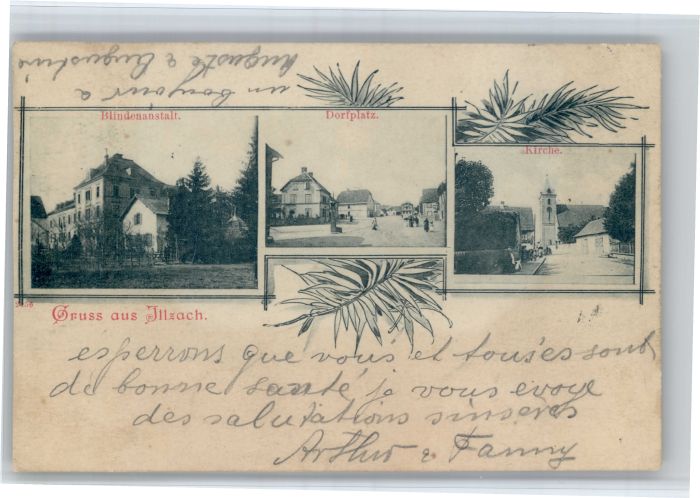 un bonjour a
Auguste & Augustine
Blindenanstalt.
Dorfplatz.
Kirche.
Gruss aus Illzach.
esperrons que vous et tousés sont
de bonne santé je vous evoye
des salutations sinseres
Arthur & Fanny